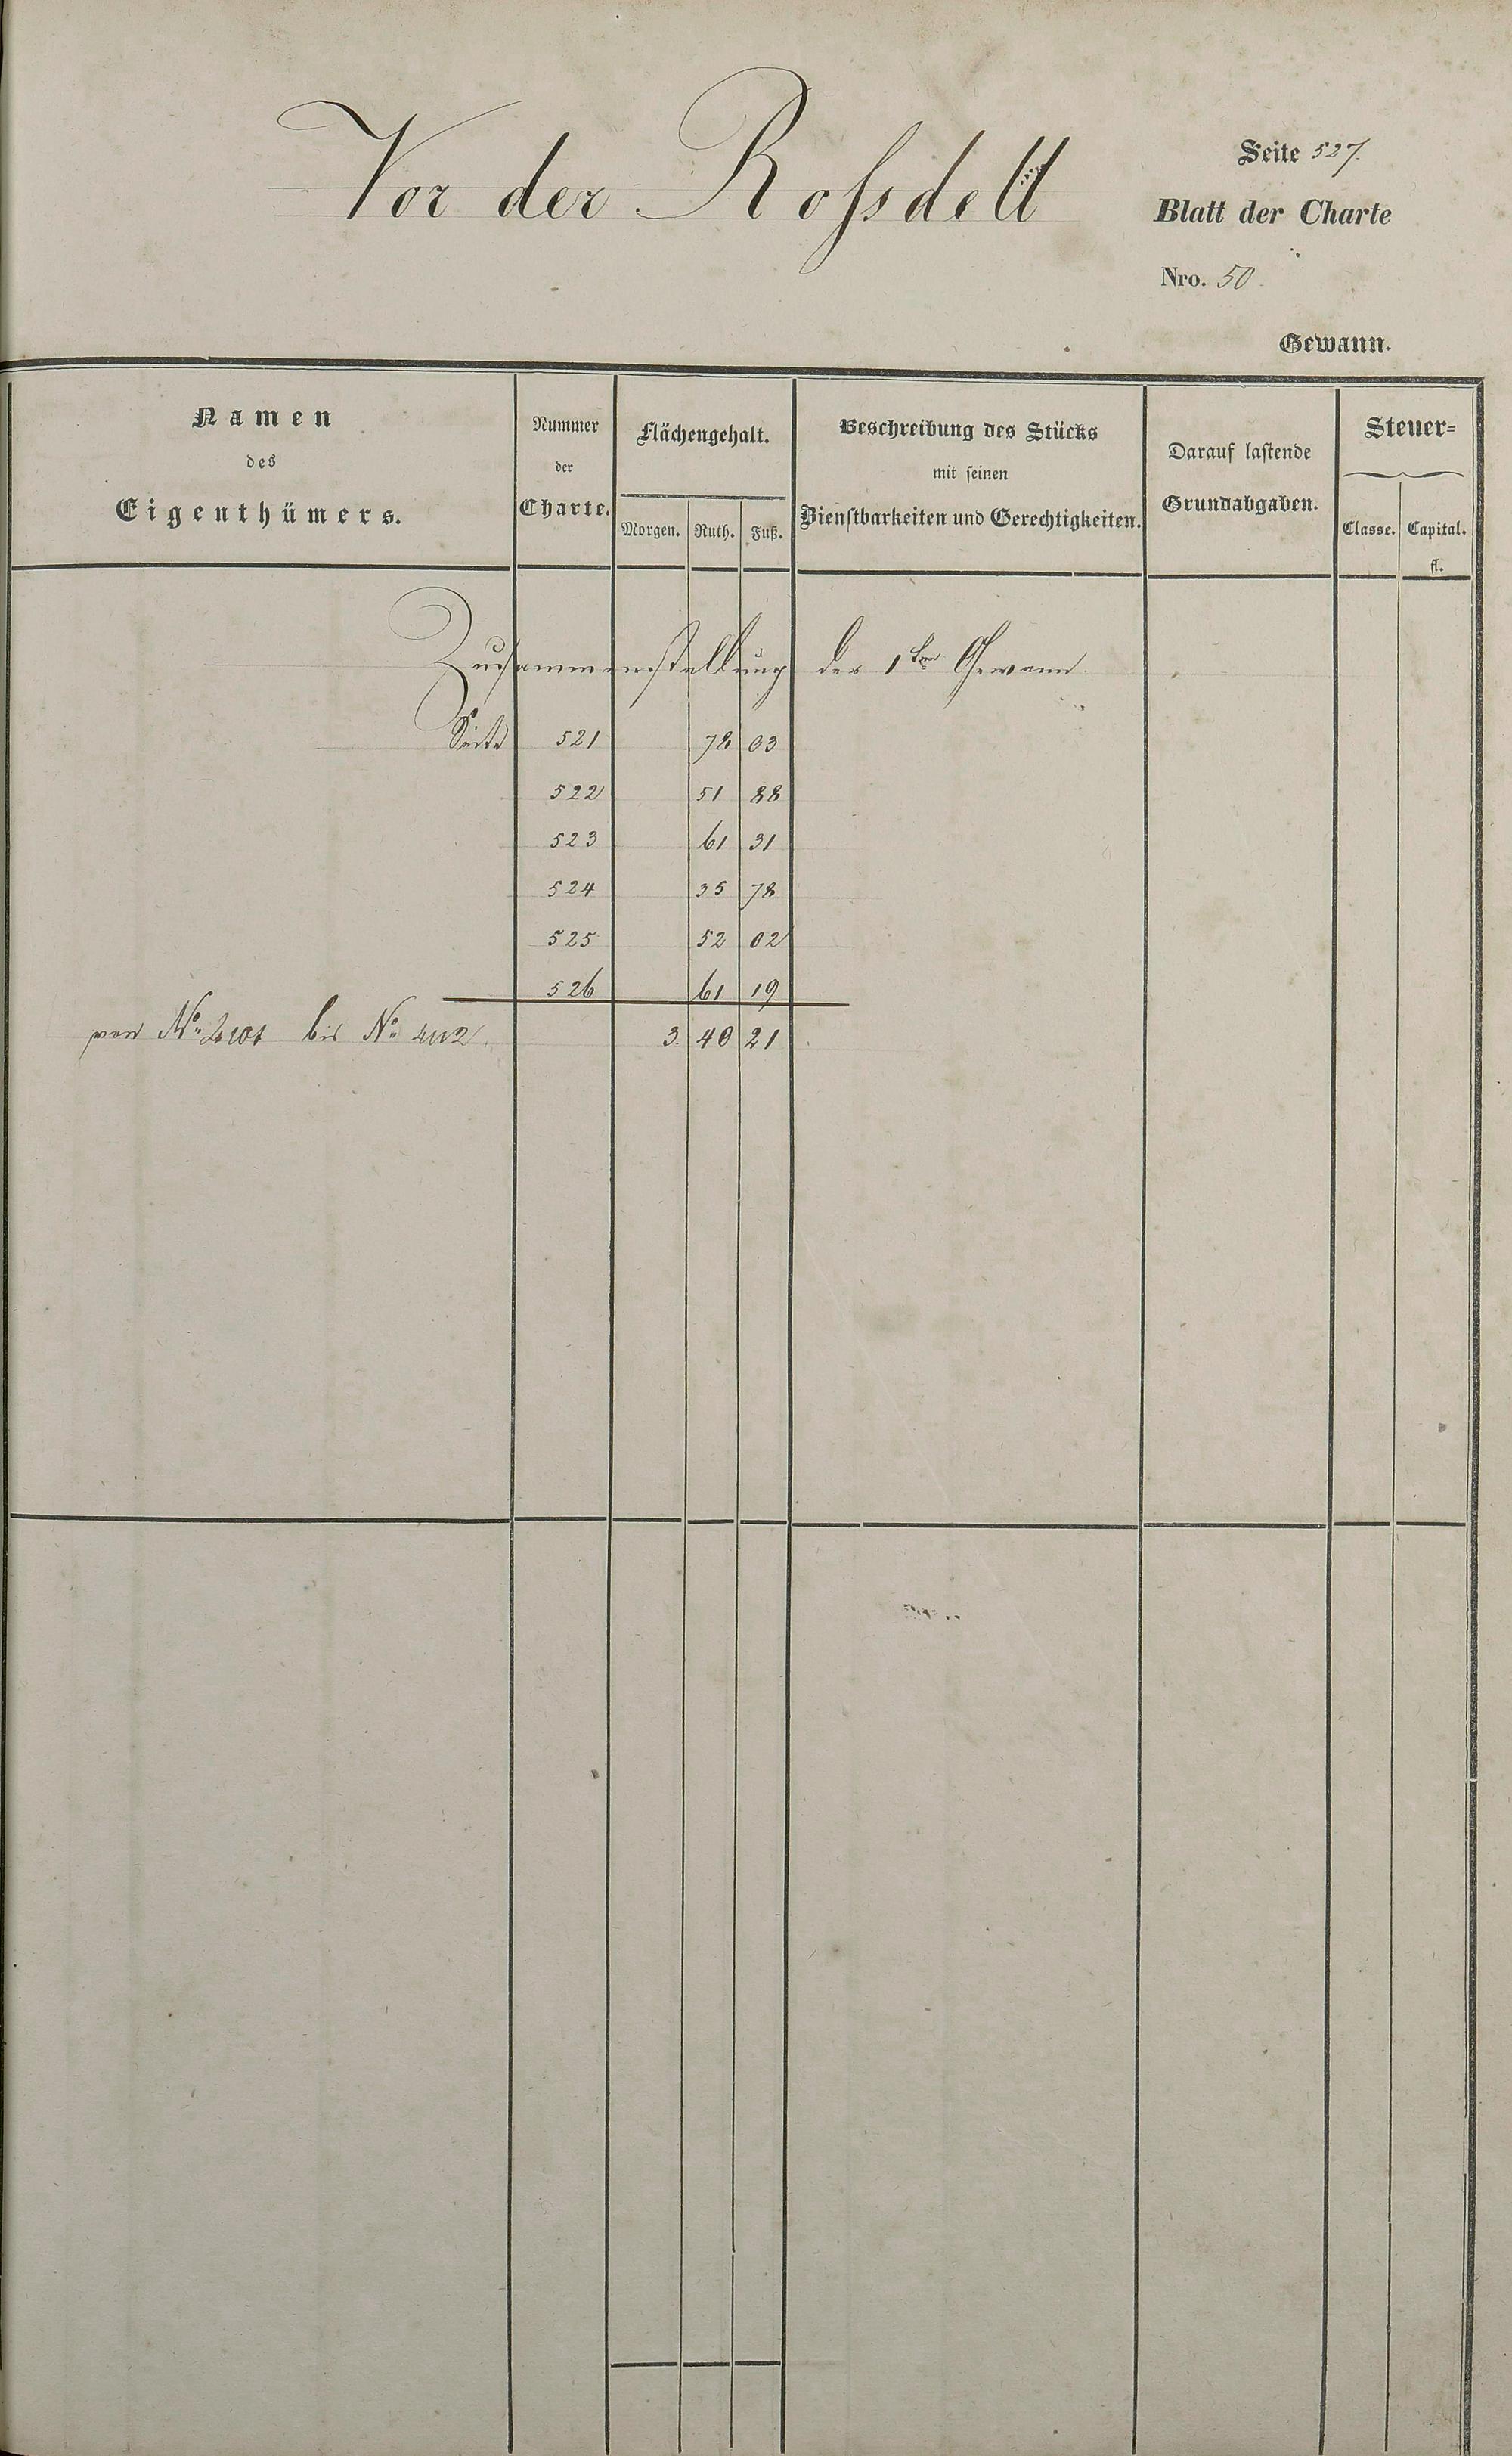 Vor der Roſsdell
Seite 527.
Blatt der Charte
Nro. 50.
Gewann.
Namen
des
Eigenthümers.
Nummer
der
Charte.
Flächengehalt.
Morgen. Ruth. Fuß.
Beschreibung des Stücks
mit seinen
Dienstbarkeiten und Gerechtigkeiten.
Darauf lastende
Grundabgaben.
Steuer=
Classe. Capital.
fl.
Zusammenstellung der 1ten Gewann
Seite 521 78 03
522 51 88
523 61 31
524 35 78
525 52 02
526 61 19
von No bis No 3. 40 21